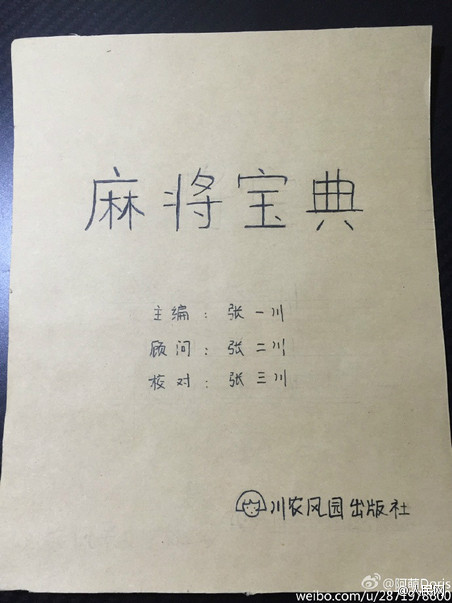 麻将宝典
主编：张一川
顾问：张二川
核对：张三川
川农风园出版社
@阿萌Doris
人民网
weibo.com/u/2871976800